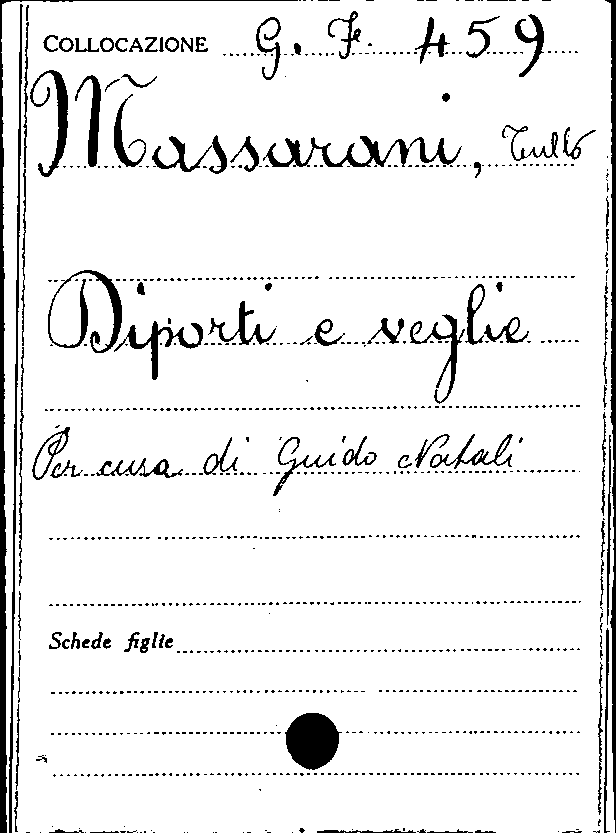 COLLOCAZIONE G. F. 459
Massarani, Tullo
Diporti e veglie
Per cura di Guido Natali
Schede figlie